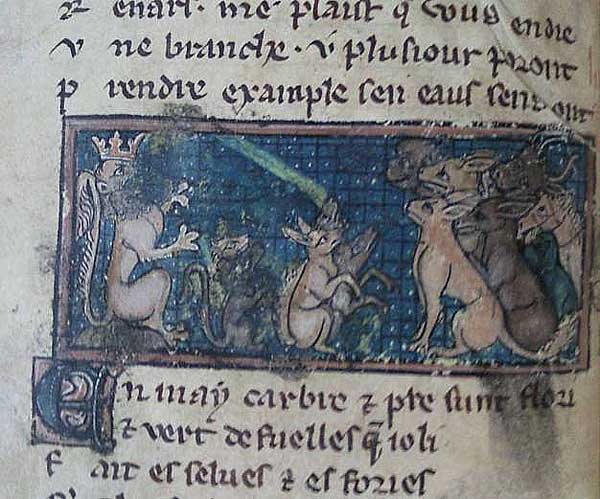 R enart. me plaist q vous endie
v ne branche. v plusiour poront
p rendre example sen eaus
En may carbre & pre sunt flori
& vert de fuelles q̃ ioli
f ait es selues & es fories